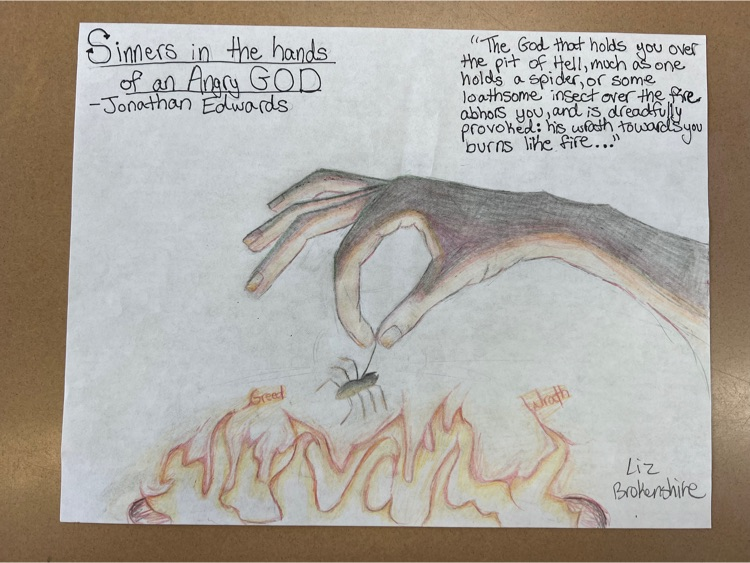 Sinners in the hands
of an Angry GOD
-Jonathan Edwards
"The God that holds you over
the pit of Hell, much as one
holds a spider, or some
loathsome insect over the fire,
abhors you, and is dreadfully
provoked: his wrath towards you
burns like fire..."
Greed
Wrath
Liz
Brokenshire